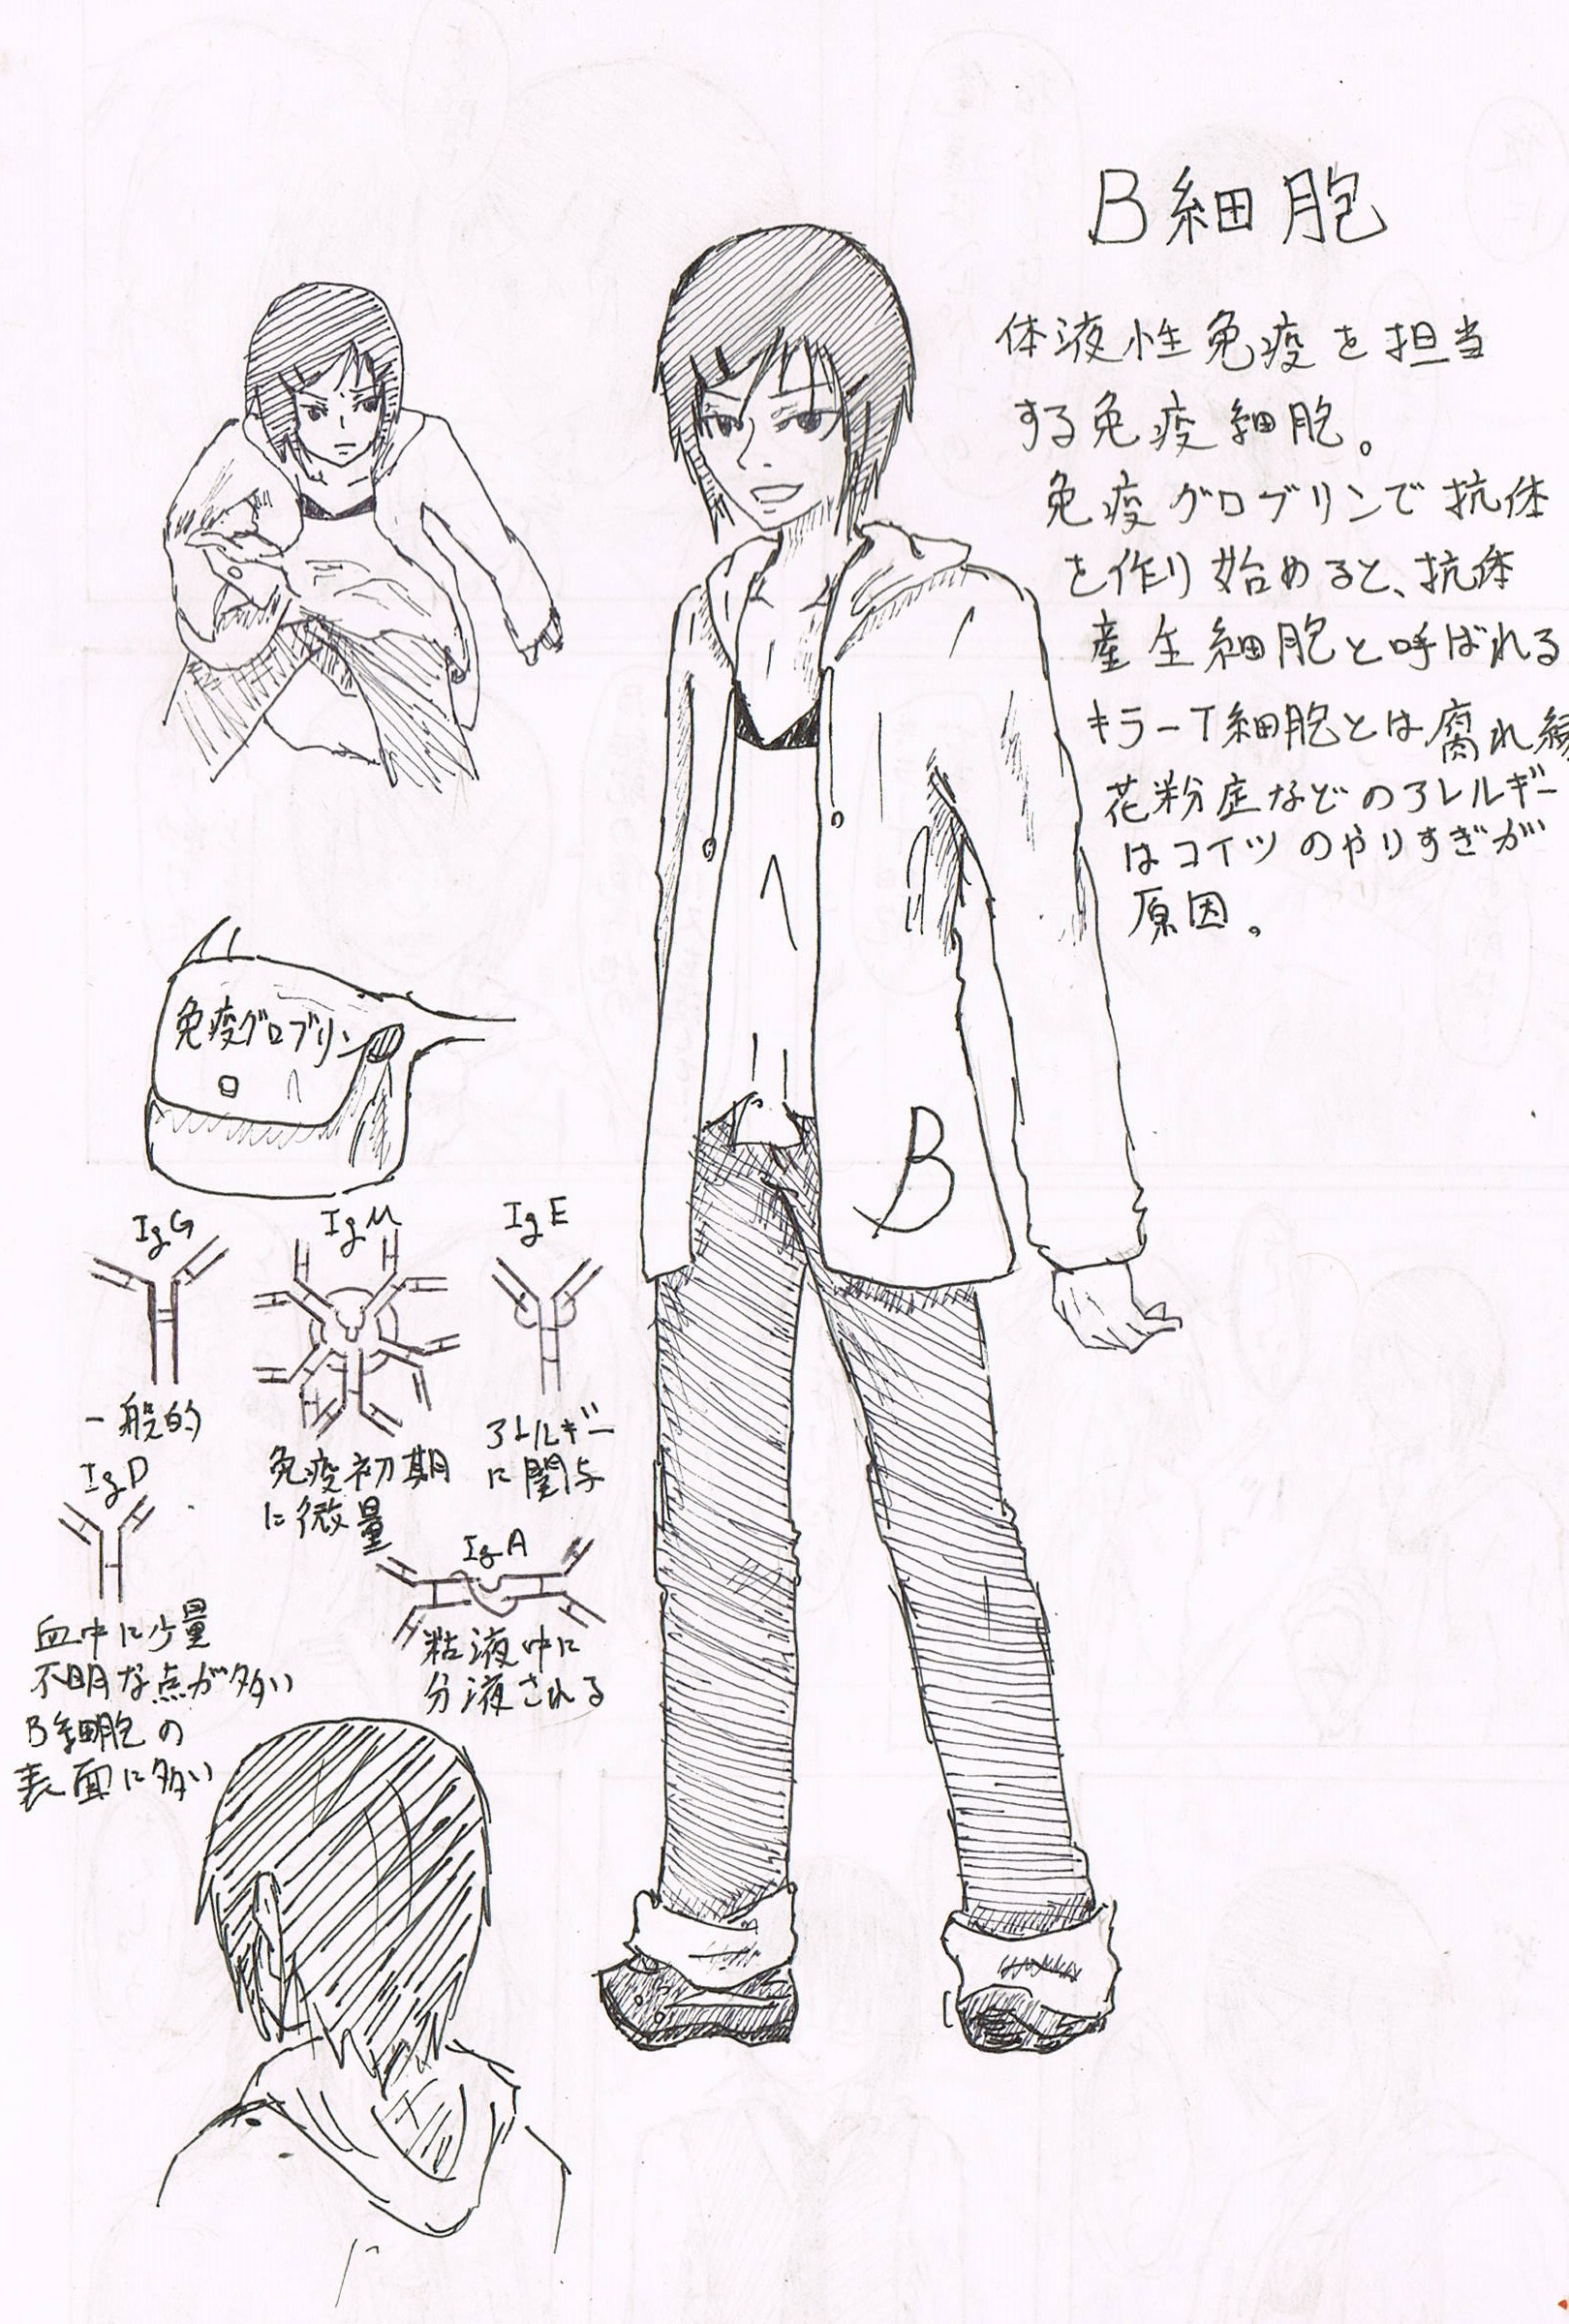 B細胞
体液性免疫を担当
する免疫細胞。
免疫グロブリンで抗体
を作り始めると、抗体
産生細胞と呼ばれる
キラーT細胞とは腐れ縁
花粉症などのアレルギー
はコイツのやりすぎが
原因。
免疫グロブリン
B
IgG
一般的
IgM
免疫初期
に微量
IgE
アレルギー
に関与
IgD
血中に少量
不明な点が多い
B細胞の
表面に多い
IgA
粘液中に
分液される